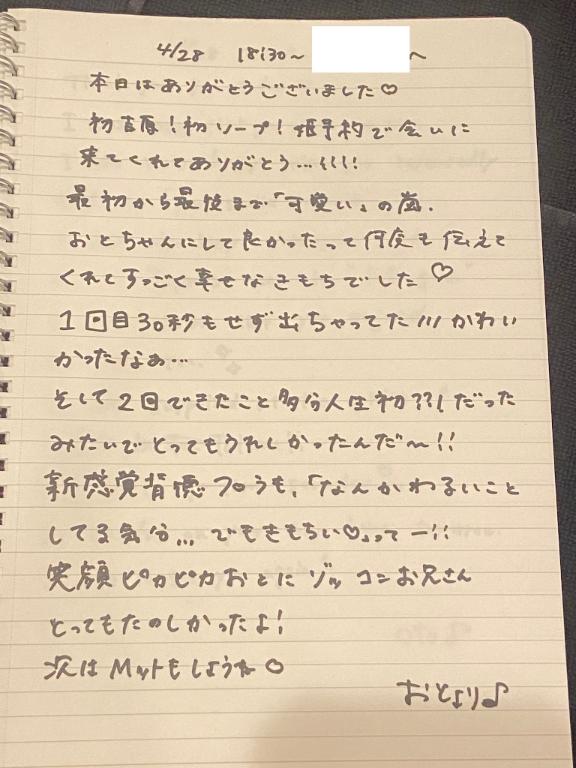 4/28 18:30〜 へ
本日はありがとうございました♡
初吉原!初ソープ!姫予約で会いに
来てくれてありがとう...!!!!
最初から最後まで「可愛い」の嵐.
おとちゃんにして良かったって何度も伝えて
くれてすっごく幸せなきもちでした♡
1回目30秒もせず出ちゃってた///かわい
かったなぁ...
そして2回できたこと多分人生初??!だった
みたいでとってもうれしかったんだ〜!!
新感覚背徳フロうも、「なんかわるいこと
してる気分...でもきもちい♡」ってー!!
笑顔ピカピカおとにゾッコンお兄さん
とってもたのしかったよ!
次はMットもしようね♡
おとより♪